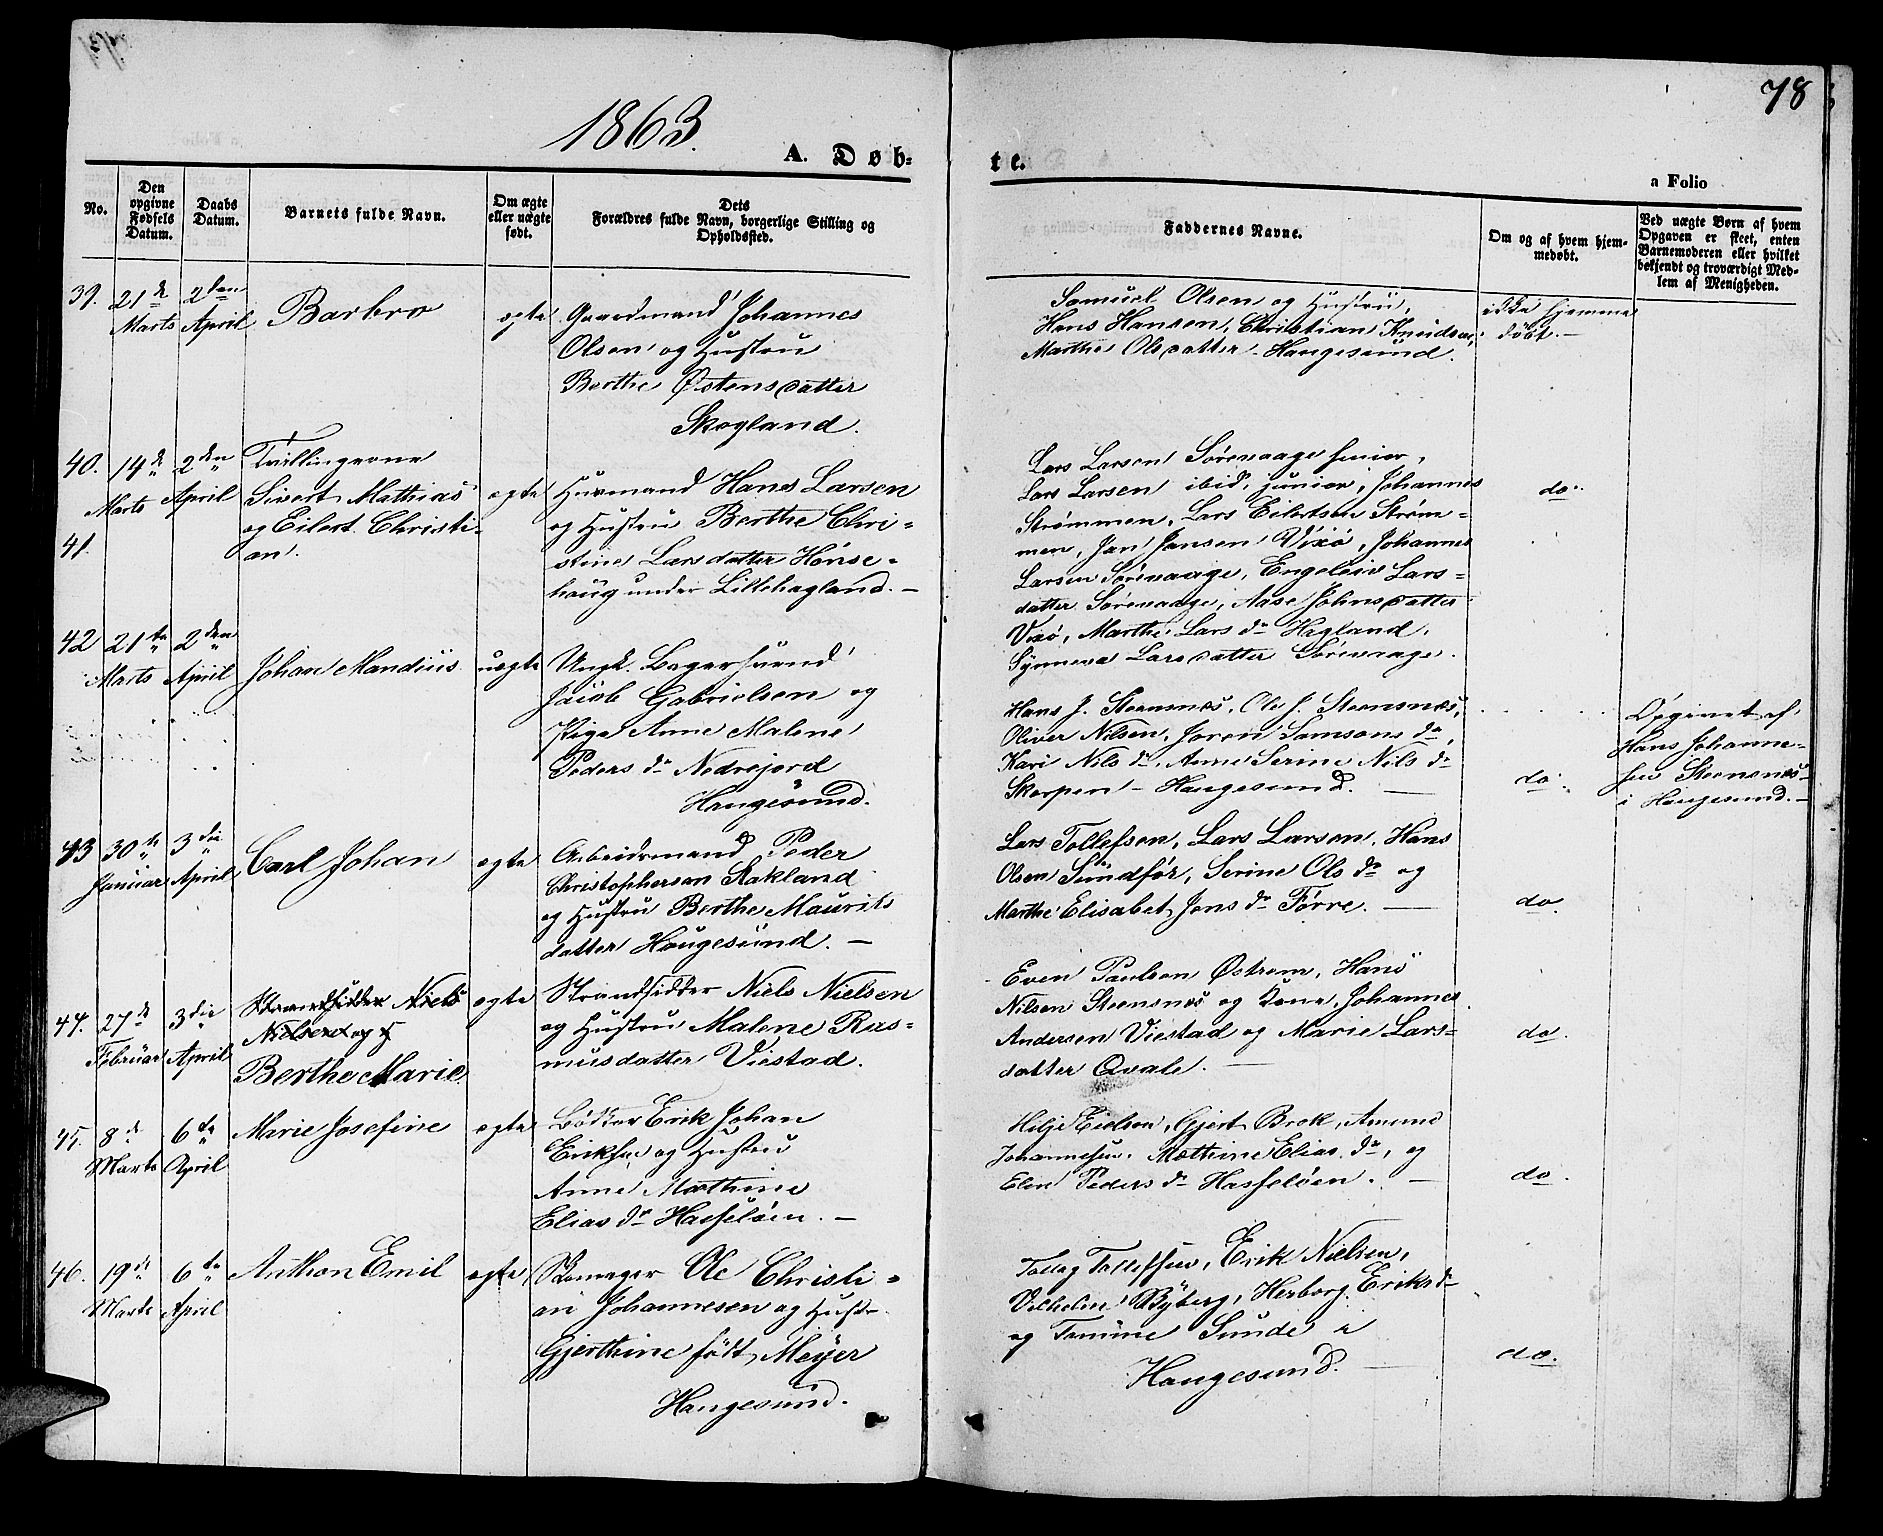 78
1863.
A. Døb-
te.
a Folio
No.
Den opgivne Fødsels Datum.
Daabs Datum.
Barnets fulde Navn.
Om ægte eller uægte født.
Dets Forældres fulde Navn, borgerlige Stilling og Opholdssted.
Faddernes Navne.
Om og af hvem hjemmedøbt.
Ved uægte Børn af hvem Opgaven er skeet, enten Barnemoderen eller hvilket bekjendt og troværdigt Medlem af Menigheden.
39.
21de
Marts
2den
April
Barbro
egte
Gaardmand Johannes
Olsen og Hustru
Berthe Østensdatter
Skogland.
Samuel Olsen og Hustru,
Hans Hansen, Christian Knudsen,
Marthe Olsdatter - Haugesund.
ikke hjemme
døbt.-
40.
41.
14de
Marts
2den
April
Tvillingerne
Sivert Mathias
og Eilert Christi-
an.
egte
Huusmand Hans Larsen
og Hustru Berthe Chri-
stine Larsdatter Hønse-
haug under Lillehagland.-
Lars Larsen Sørevaage senior,
Lars Larsen ibid. junior, Johannes
Strømmen, Lars Eilertsen Strøm-
men, Jan Jansen Vixø, Johannes
Larsen Sørevaage, Engeleiv Lars-
datter Sørevaage, Aase Johnsdatter
Vixø, Marthe Lars dr Hagland,
Synneva Larsdatter Sørevaage.
do.
42
21te
Marts
2den
April
Johan Mandius
uegte
Ungk. Bagersvend
Jacob Gabrielsen og
Pige Anne Malene
Peders dr Nedrejord
Haugesund.
Hans J. Steensnes, Ole J. Steensnes,
Oliver Nilsen, Joren Samsons dr,
Kari Nils dr, Anne Serine Nils dr
Skorpen - Haugesund. -
do.
Opgivet af
Hans Johanne-
sen Steensnes
i Haugesund.-
43
30te
Januar
3die
April
Carl Johan
egte
Arbeidsmand Peder
Christophersen Stakland
og Hustru Berthe Maurits
datter Haugesund. -
Lars Tollefsen, Lars Larsen, Hans
Olsen Sundfør, Serine Ols dr og
Marthe Elisabet Jens dr Førre. -
do.
44.
27de
Februar
3die
April
Strandsidder Niels
Nielsen og
Berthe Marie
egte
Strandsidder Niels Nielsen
og Hustru Malene Ras-
musdatter Viestad.
Even Paulsen Østrem, Hans
Nilsen Steensnes og Kone, Johannes
Andersen Viestad og Marie Lars-
datter Qvale. -
do.
45.
8de
Marts
6te
April
Marie Josefine
egte
Bødker Erik Johan
Eriksen og Hustru
Anne Marthine
Elias dr Hasseløen. -
Gjert Brek, Amund
Johannesen, Mathine Elias dr, og
Elen Peders dr Hasseløen. -
do.
46.
19de
Marts
6te
April
Anthon Emil
egte
Skomager Ole Christi-
an Johannesen og Hustr.
Gjerthine født Meyer
Haugesund.
Tollag Tollefsen, Erik Nielsen,
Vilhelm Byberg, Herborg Eriksdr
og Tomine Sunde i
Haugesund. -
do.